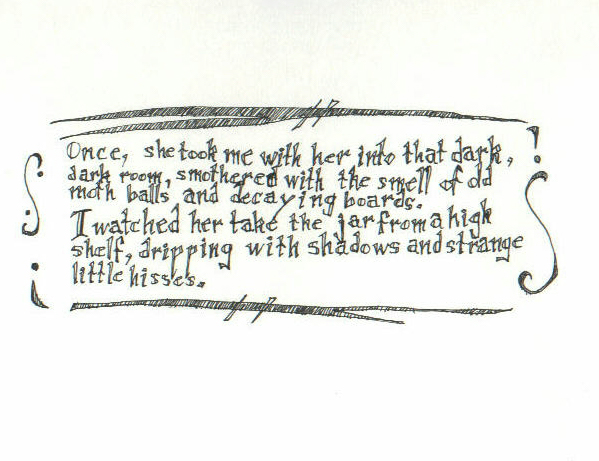 Once, she took me with her into that dark,
dark room, smothered with the smell of old
moth balls and decaying boards.
I watched her take the jar from a high
shelf, dripping with shadows and strange
little hisses.